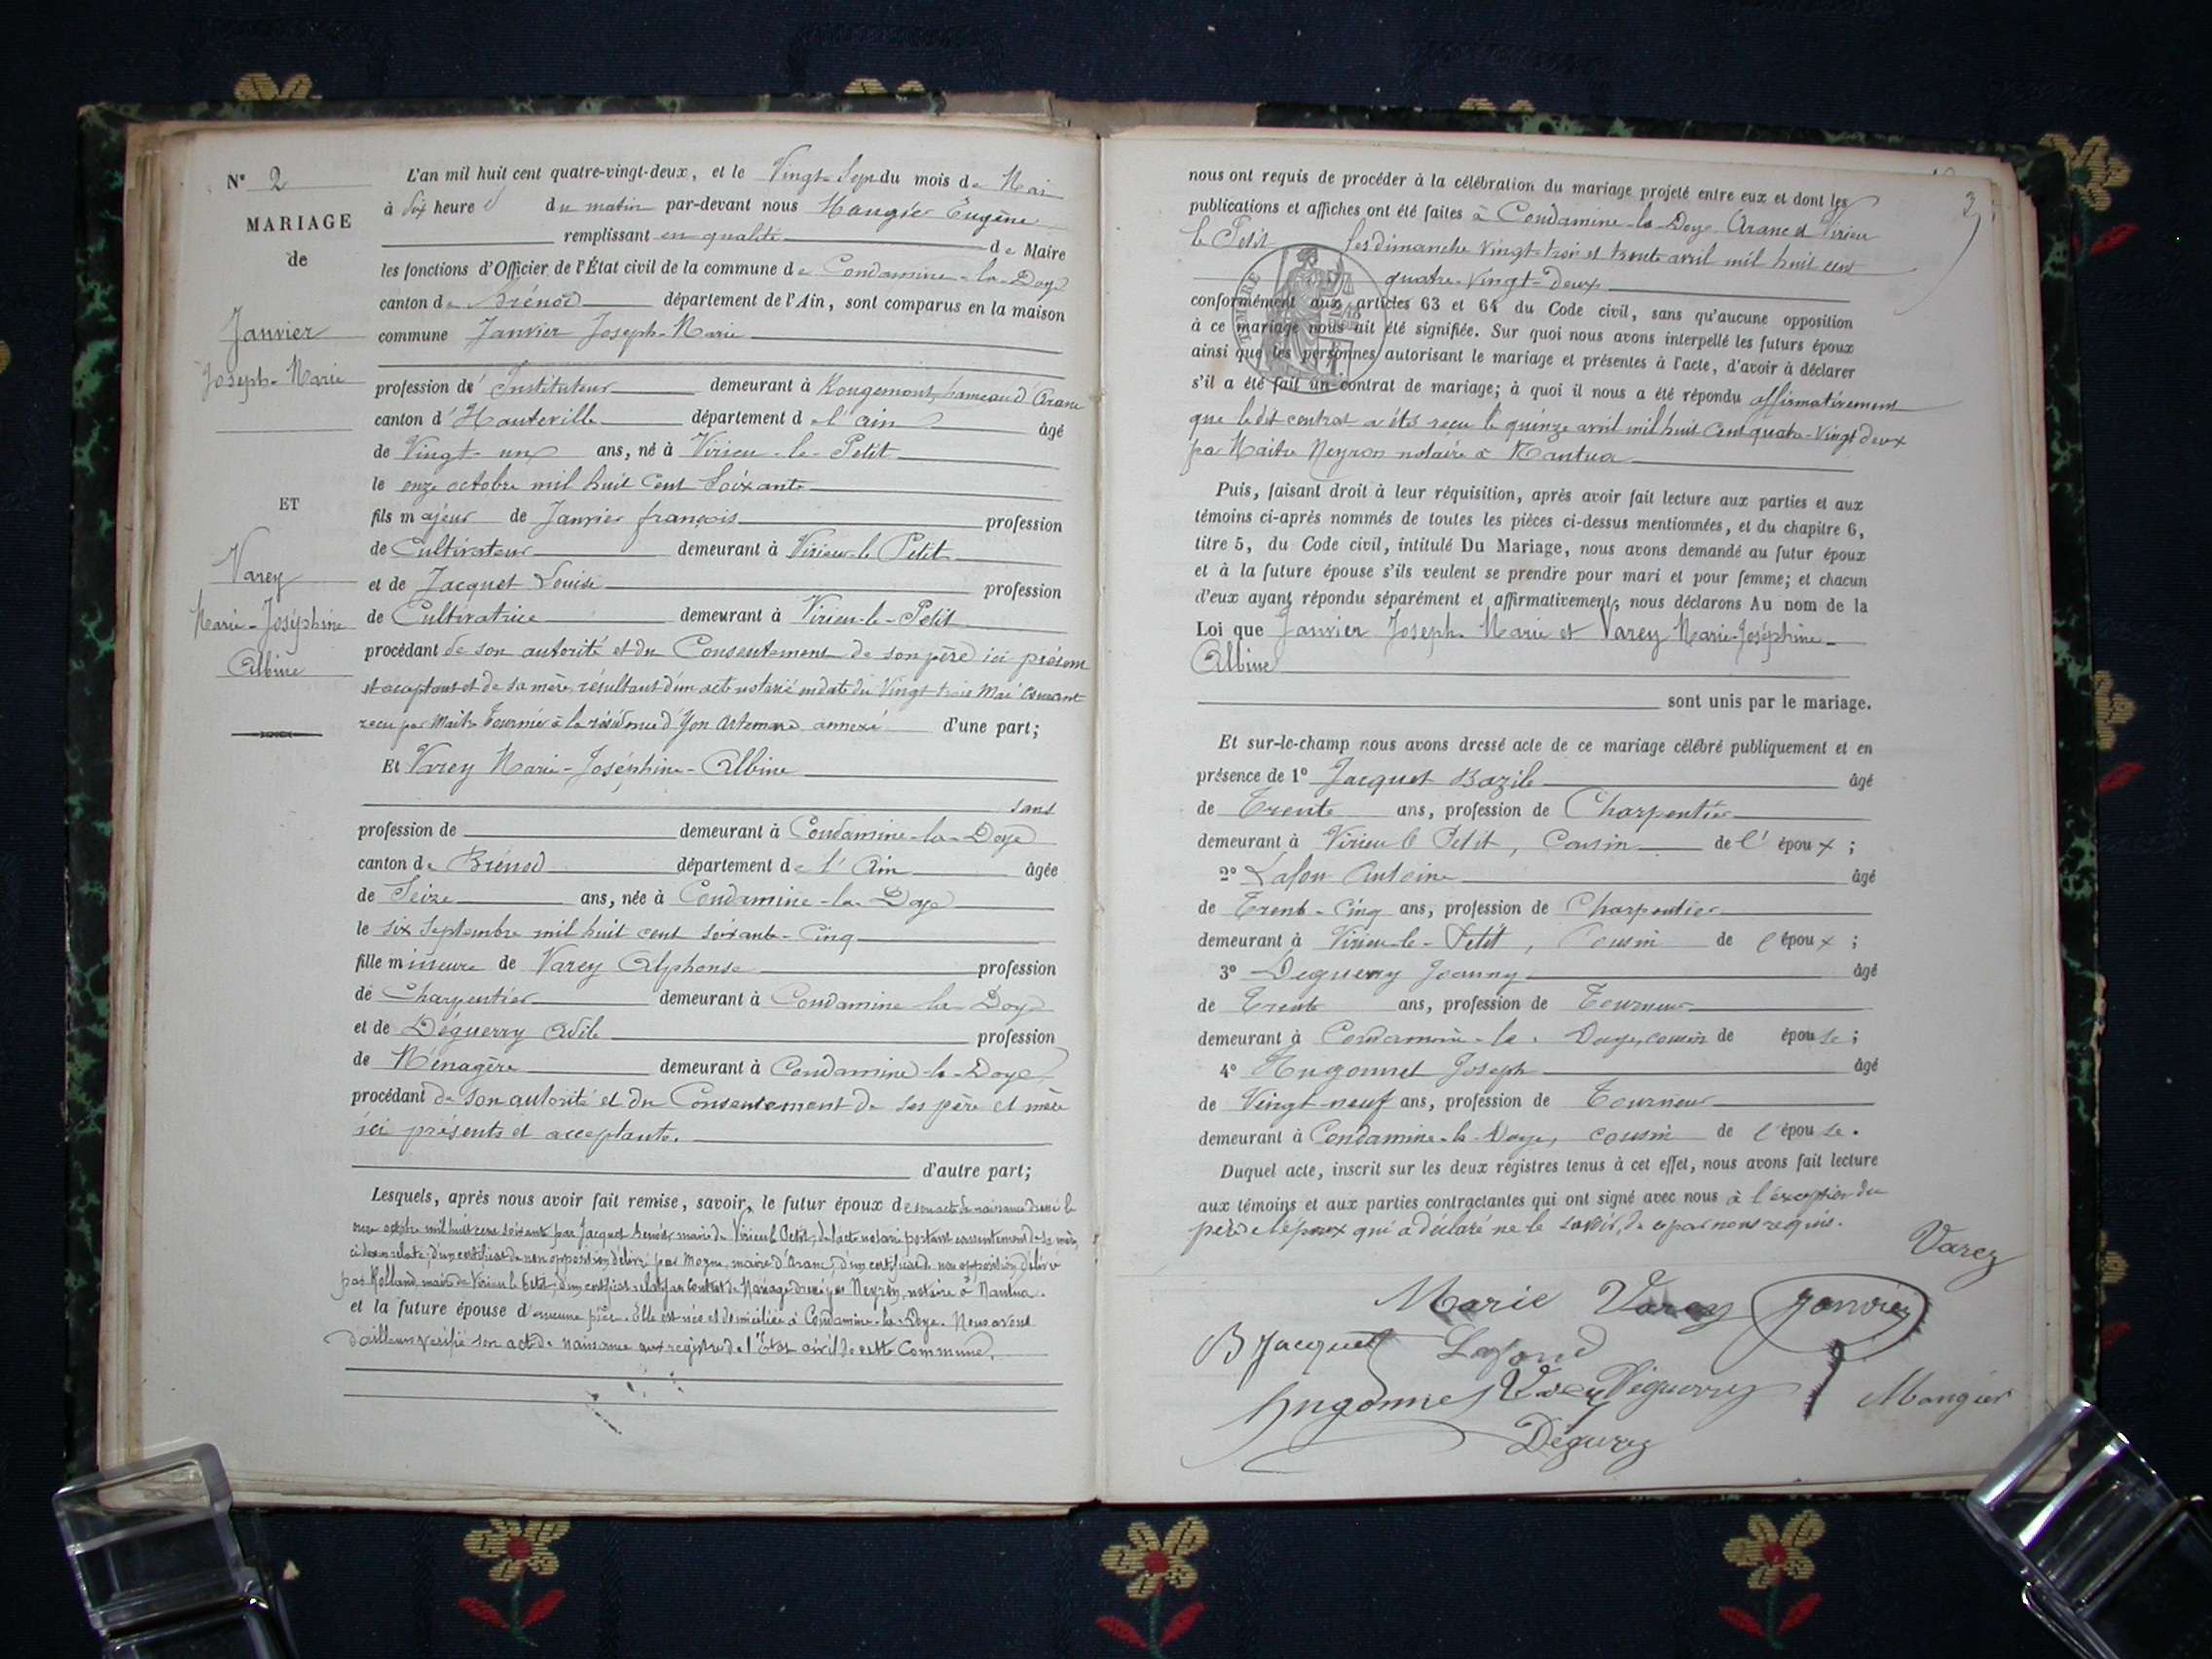 N° 2
MARIAGE
de
Janvier
Joseph-Marie
ET
Varey
Marie-Joséphine
Albine
L'an mil huit cent quatre-vingt-deux, et le Vingt-Sept du mois de Mai
à dix heure s du matin par-devant nous Mangier Eugène
remplissant en qualité de Maire
les fonctions d'Officier de l'État civil de la commune de Condamine-la-Doye
canton de Brénod département de l'Ain, sont comparus en la maison
commune Janvier Joseph-Marie
profession d' Instituteur demeurant à Rougemont, hameau d'Aranc
canton d'Hauteville département de l'ain âgé
de Vingt-un ans, né à Virieu-le-Petit
le onze octobre mil huit cent soixante
fils majeur de Janvier françois profession
de Cultivateur demeurant à Virieu-le Petit
et de Jacquet Louise profession
de Cultivatrice demeurant à Virieu-le-Petit
procédant de son autorité et du Consentement de son père ici présent
et acceptant et de sa mère, résultant d'un acte notarié en date du Vingt trois Mai Courant
recu par Maitre Fournier à la résidence d'Yon Artemare annexé d'une part;
Et Varey Marie-Joséphine-Albine
sans
profession de demeurant à Condamine-la-Doye
canton de Brénod département de l'Ain âgée
de Seize ans, née à Condamine-la-Doye
le six Septembre mil huit cent soixante-Cinq
fille mineure de Varey Alphonse profession
de Charpentier demeurant à Condamine la Doye
et de Déguerry Adèle profession
de Ménagère demeurant à Condamine-la-Doye
procédant de son autorité et du Consentement de ses père et mère
ici présents et acceptants.
d'autre part;
Lesquels, après nous avoir fait remise, savoir, le futur époux de son acte de naissance dressé le
onze octobre mil huit cent soixante par Jacquet Benoit, maire de Virieu le Petit, de l'acte notarié portant consentement de sa mère,
ci dessus relaté; d'un certificat de non opposition délivré par Moyne, maire d'Aranc, d'un certificat de non opposition délivré
par Rolland, maire de Virieu le Petit, d'un certificat relatif au contrat de Mariage dressé par Neyron, notaire à Nantua.
et la future épouse d'aucune pièce. Elle est née et domiciliée à Condamine-la-Doye. Nous avons
d'ailleurs vérifié son acte de naissance aux registres de l'État civil de cette Commune.
3
nous ont requis de procéder à la célébration du mariage projeté entre eux et dont les
publications et affiches ont été faites à Condamine-la-Doye Aranc et Virieu
le Petit les dimanche vingt-trois et trente avril mil huit cent
quatre-vingt-deux
conformément aux articles 63 et 64 du Code civil, sans qu'aucune opposition
à ce mariage nous ait été signifiée. Sur quoi nous avons interpellé les futurs époux
ainsi que les personnes autorisant le mariage et présentes à l'acte, d'avoir à déclarer
s'il a été fait un contrat de mariage; à quoi il nous a été répondu affirmativement
que le dit contrat a été reçu le quinze avril mil huit Cent quatre-Vingt deux
par Maitre Neyron notaire à Nantua
Puis, faisant droit à leur réquisition, après avoir fait lecture aux parties et aux
témoins ci-après nommés de toutes les pièces ci-dessus mentionnées, et du chapitre 6,
titre 5, du Code civil, intitulé Du Mariage, nous avons demandé au futur époux
et à la future épouse s'ils veulent se prendre pour mari et pour femme; et chacun
d'eux ayant répondu séparément et affirmativement, nous déclarons Au nom de la
Loi que Janvier Joseph-Marie et Varey Marie-Joséphine-
Albine
sont unis par le mariage.
Et sur-le-champ nous avons dressé acte de ce mariage célébré publiquement et en
présence de 1° Jacquet Bazile âgé
de Trente ans, profession de Charpentier
demeurant à Virieu le Petit, Cousin de l' époux ;
2° Lafon Antoine âgé
de Trente-Cinq ans, profession de Charpentier
demeurant à Virieu-le-Petit, Cousin de l'époux ;
3° Deguerry Joanny âgé
de Trente ans, profession de Tourneur
demeurant à Condamine-la-Doye, cousin de épouse ;
4° Hugonnet Joseph âgé
de Vingt-neuf ans, profession de Tourneur
demeurant à Condamine-la-Doye, cousin de l'épouse.
Duquel acte, inscrit sur les deux registres tenus à cet effet, nous avons fait lecture
aux témoins et aux parties contractantes qui ont signé avec nous à l'exception du
père de l'époux qui a déclaré ne le savoir, de ce par nous requis.
Varey
Marie Varey Janvier
B Jacquet Lafond
Hugonnet Varey Déguerry Mangier
Déguerry